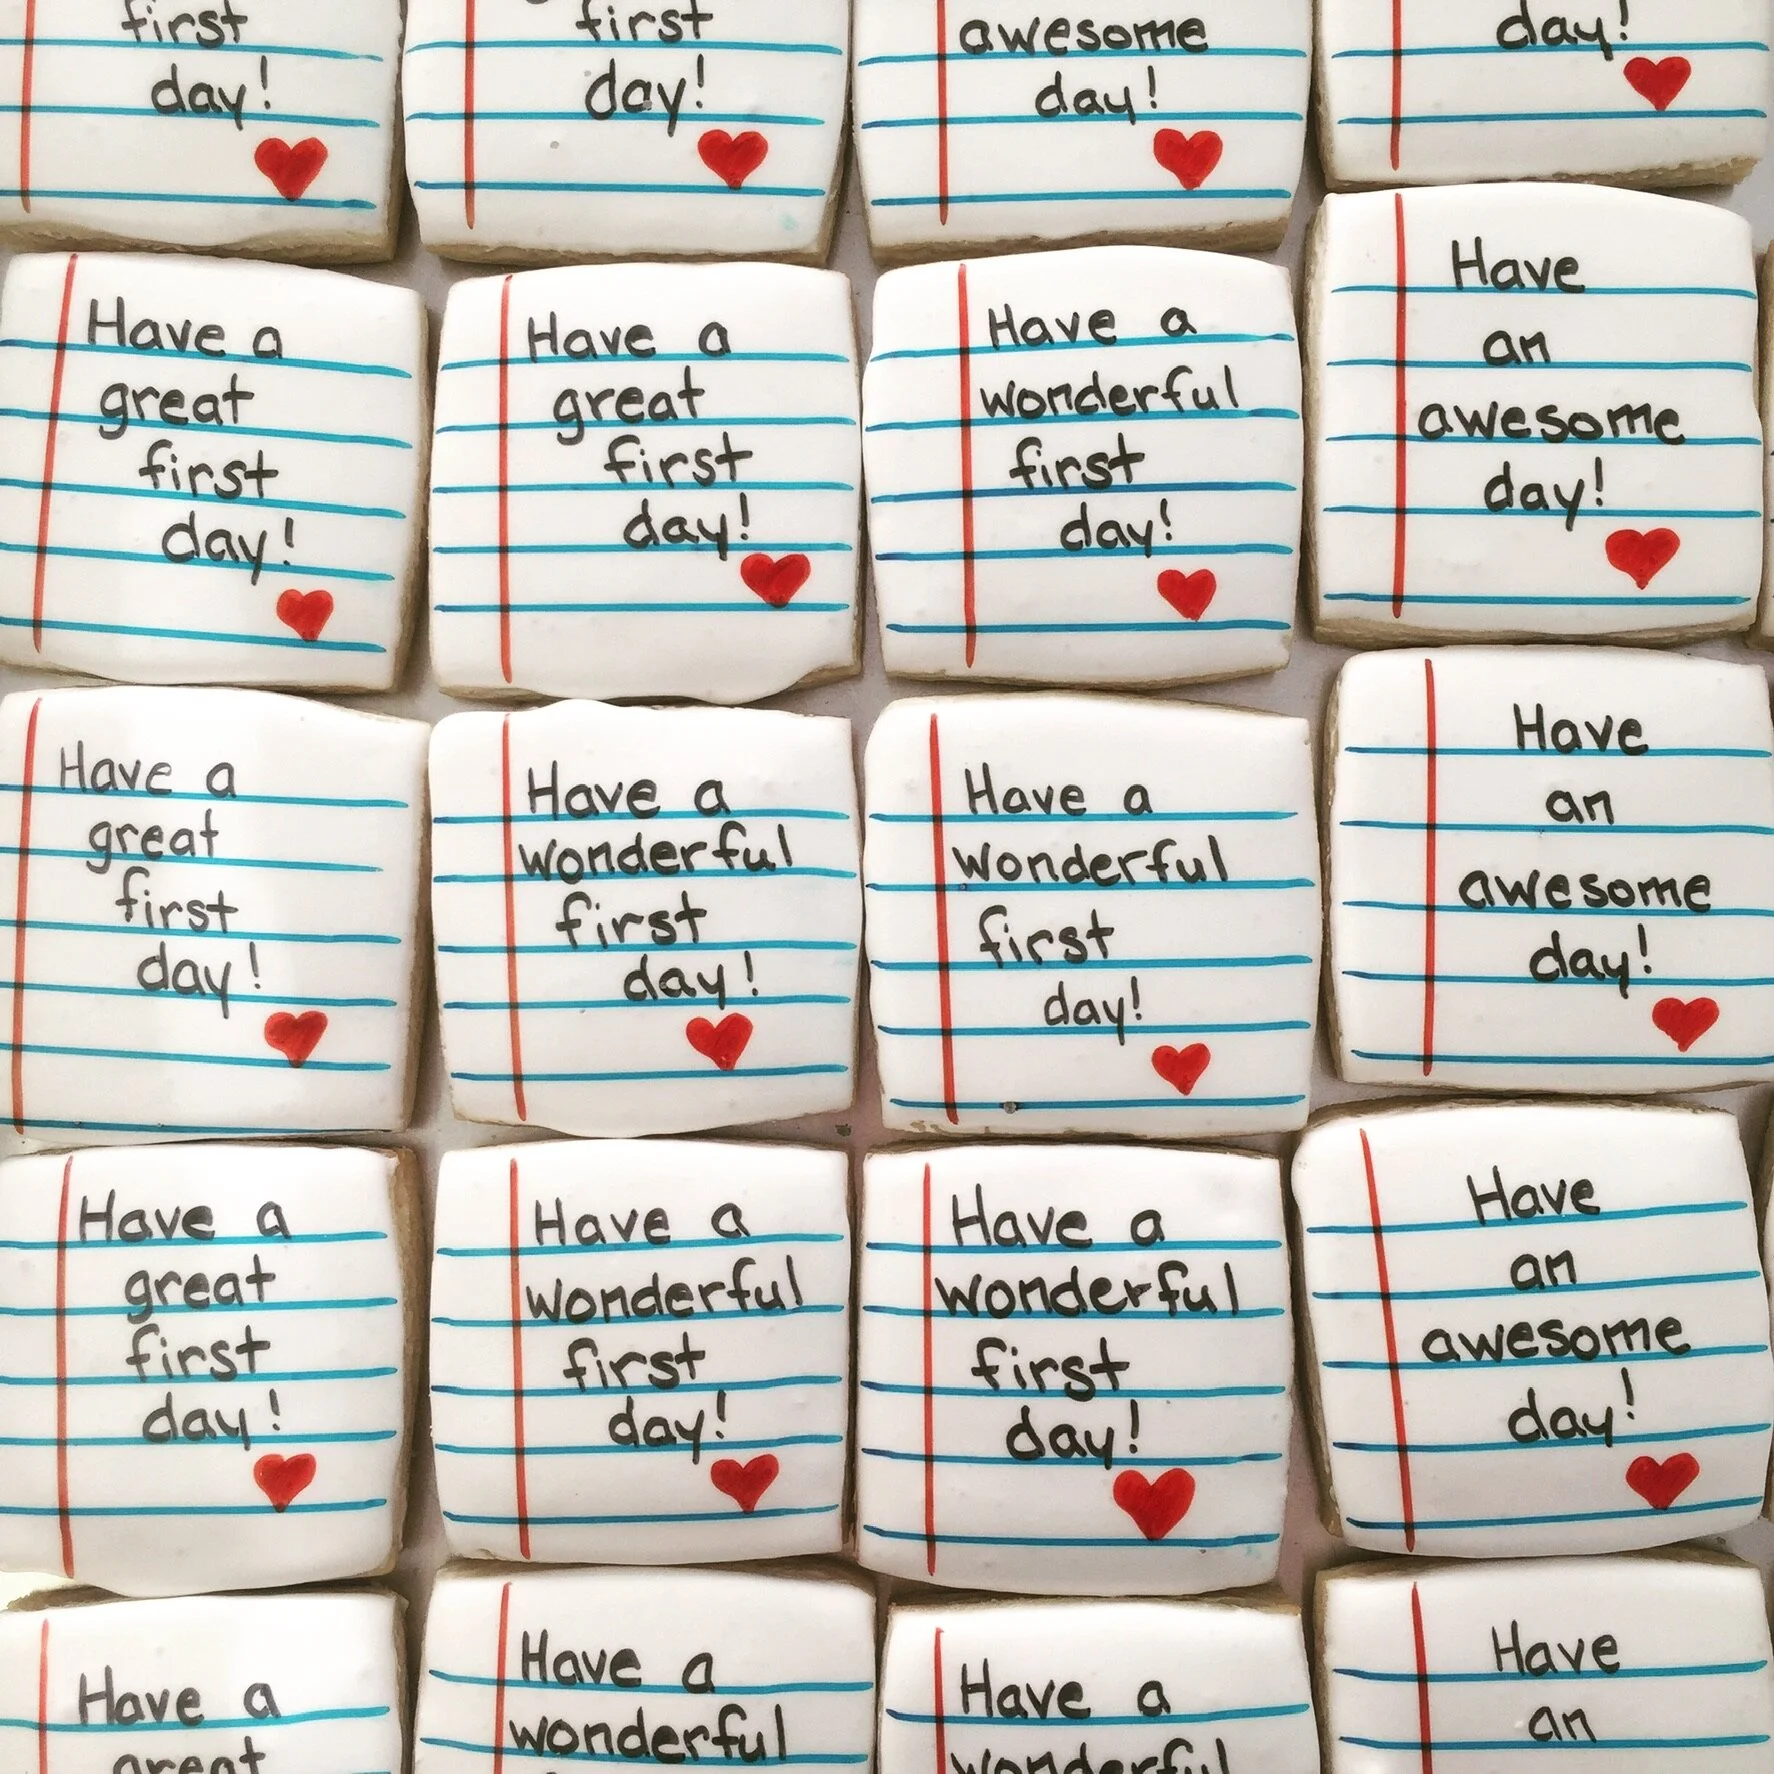 first
day!
first
day!
awesome
day!
day!
Have a
great
first
day!
Have a
great
first
day!
Have a
wonderful
first
day!
Have
an
awesome
day!
Have a
great
first
day!
Have a
wonderful
first
day!
Have a
wonderful
first
day!
Have
an
awesome
day!
Have a
great
first
day!
Have a
wonderful
first
day!
Have a
wonderful
first
day!
Have
an
awesome
day!
Have a
great
Have a
wonderful
Have a
wonderful
Have
an